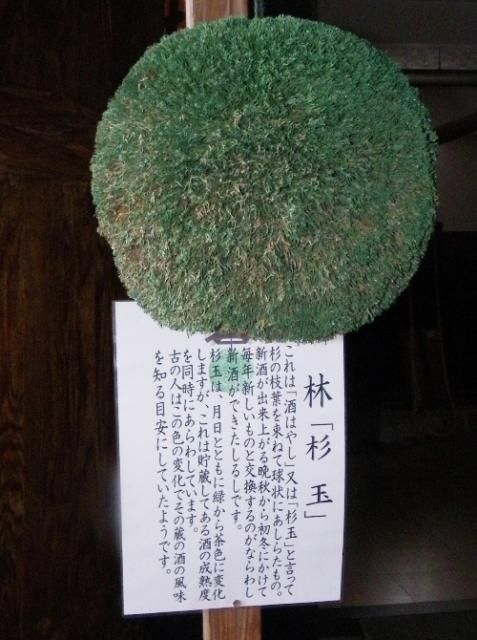 林「杉玉」
これは「酒はやし」又は「杉玉」と言って
杉の枝葉を束ねて球状にあしらたもの。
新酒が出来上がる晩秋から初冬にかけて
毎年新しいものと交換するのがならわし
新酒ができたしるしです。
杉玉は、月日とともに緑から茶色に変化
しますが、これは貯蔵してある酒の成熟度
を同時にあらわしています。
古の人はこの色の変化でその蔵の酒の風味
を知る目安にしていたようです。